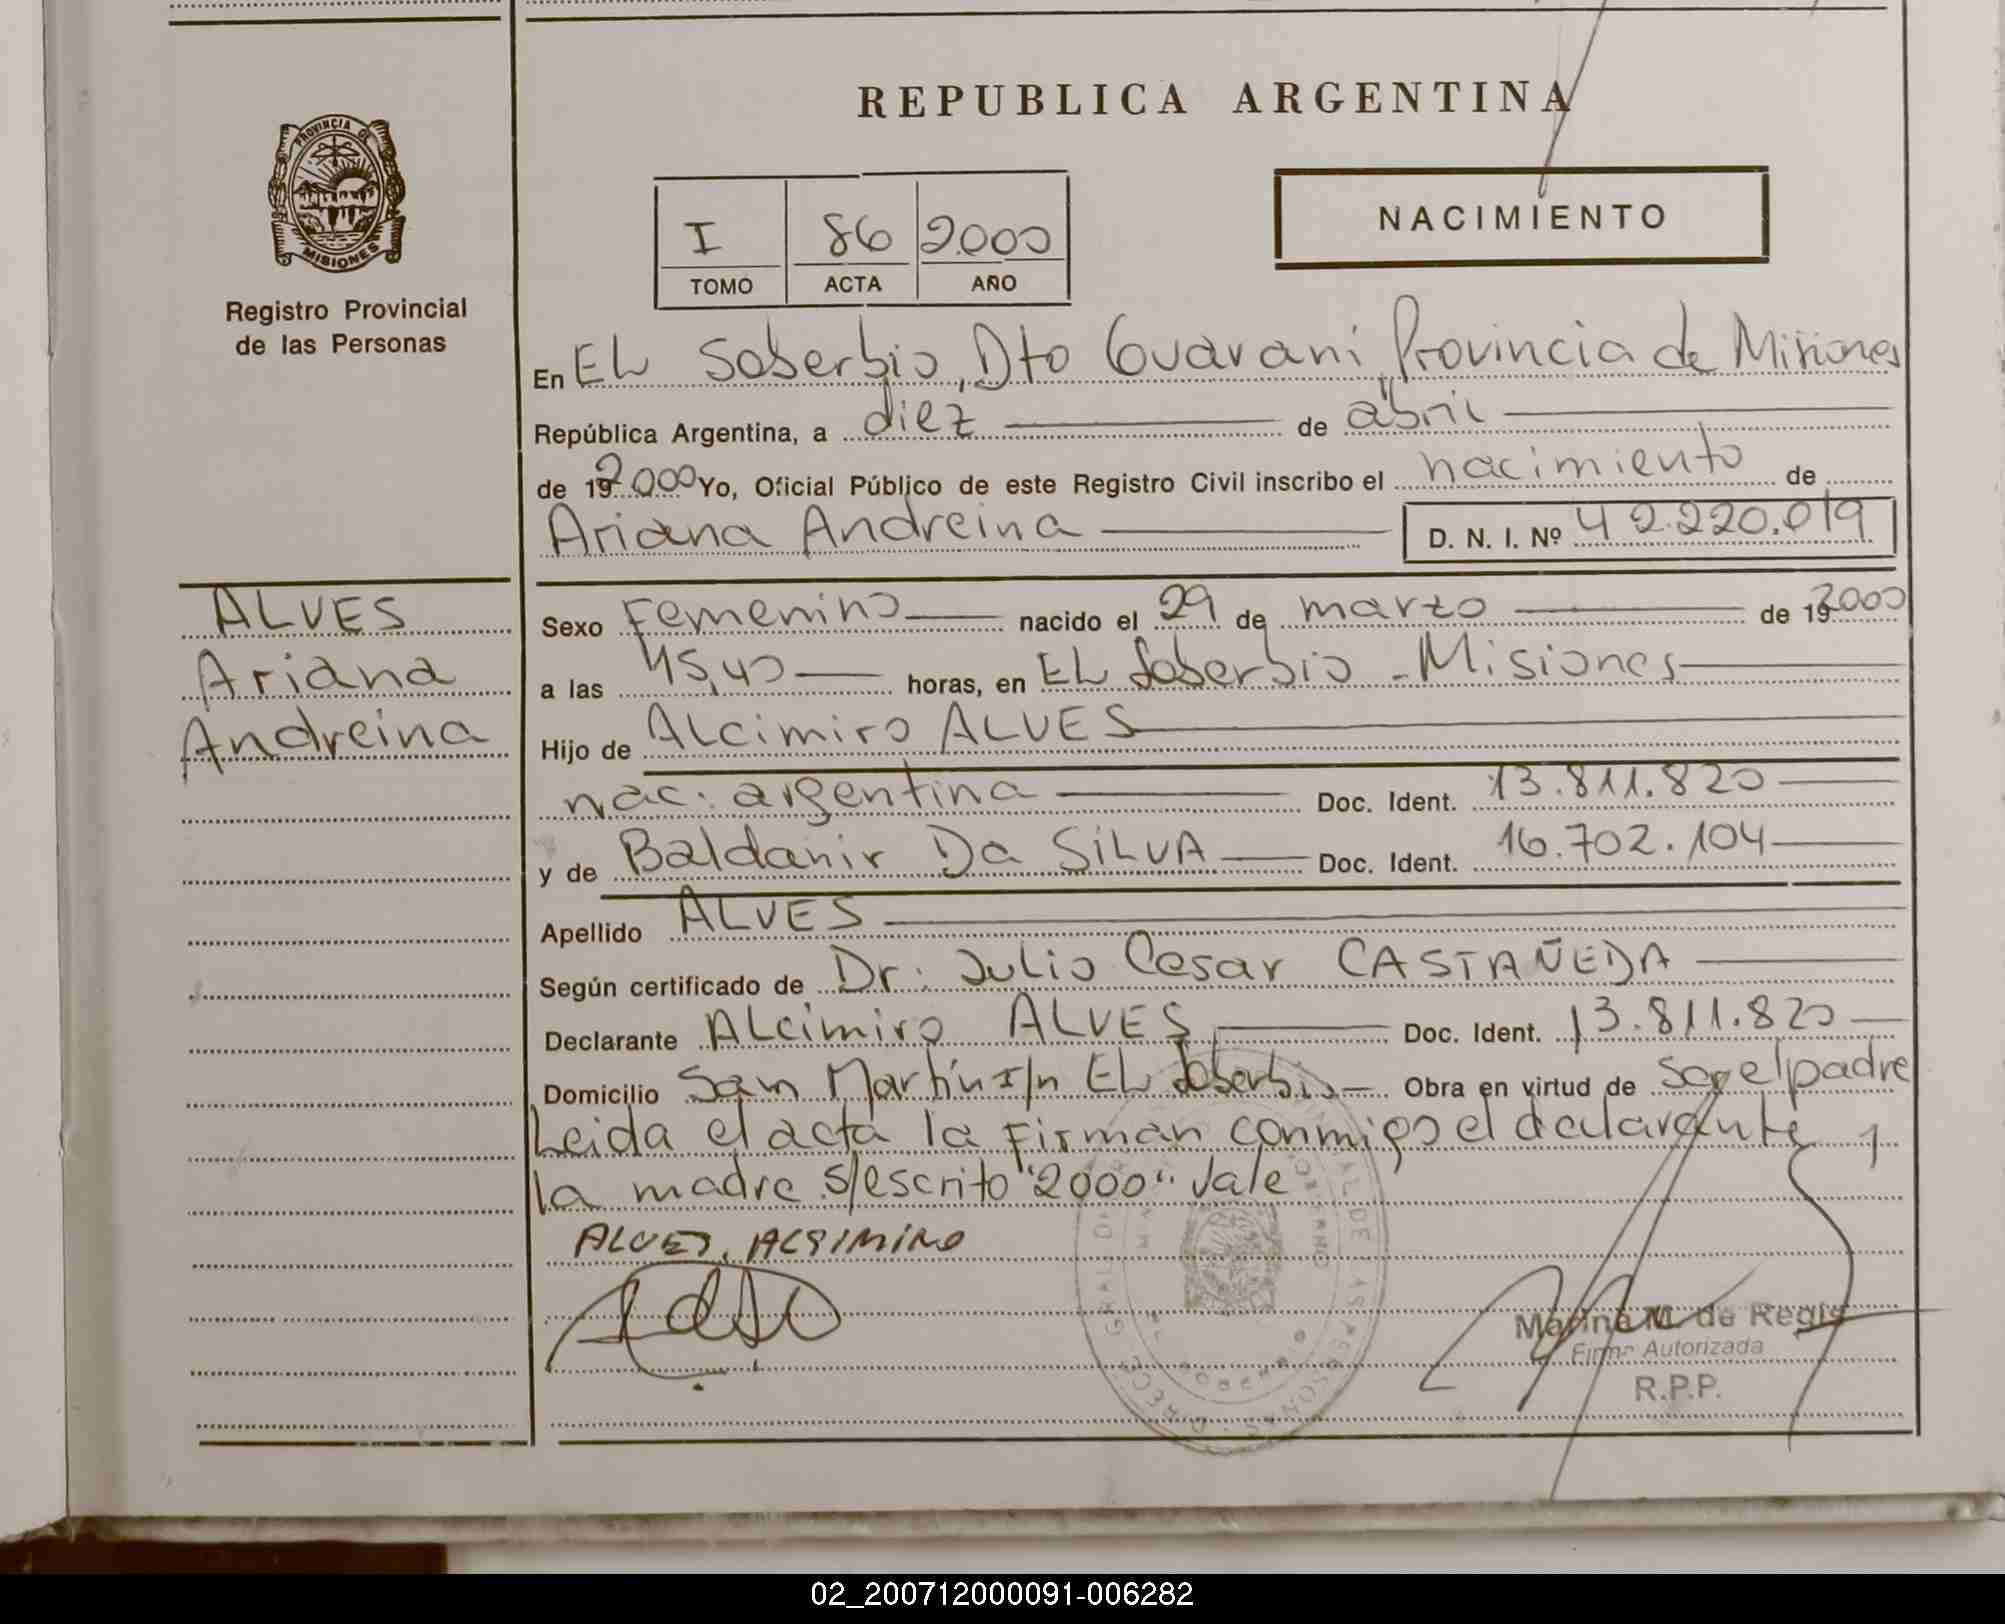 REPUBLICA ARGENTINA
PROVINCIA DE
MISIONES
Registro Provincial
de las Personas
I 86 2.000
TOMO ACTA AÑO
NACIMIENTO
En EL Soberbio, Dto Guarani Provincia de Misiones
República Argentina, a diez de abril
de 19 2000 Yo, Oficial Público de este Registro Civil inscribo el nacimiento de
Ariana Andreina D. N. I. Nº 42.220.019
ALVES
Ariana
Andreina
Sexo Femenino nacido el 29 de marzo de 19 2000
a las 15,40 horas, en EL Soberbio - Misiones
Hijo de ALcimiro ALVES
nac. argentina Doc. Ident. 13.811.820
y de Baldanir Da SiLVA Doc. Ident. 16.702.104
Apellido ALVES
Según certificado de Dr. Julio Cesar CASTAÑEDA
Declarante ALcimiro ALVES Doc. Ident. 13.811.820
Domicilio San Martín s/n EL Soberbio Obra en virtud de ser el padre
Leida el acta la Firman conmigo el declarante y
la madre s/escrito "2000" Vale
ALVES, ALCIMIRO
Marina M. de Regis
Firma Autorizada
R.P.P.
02_200712000091-006282